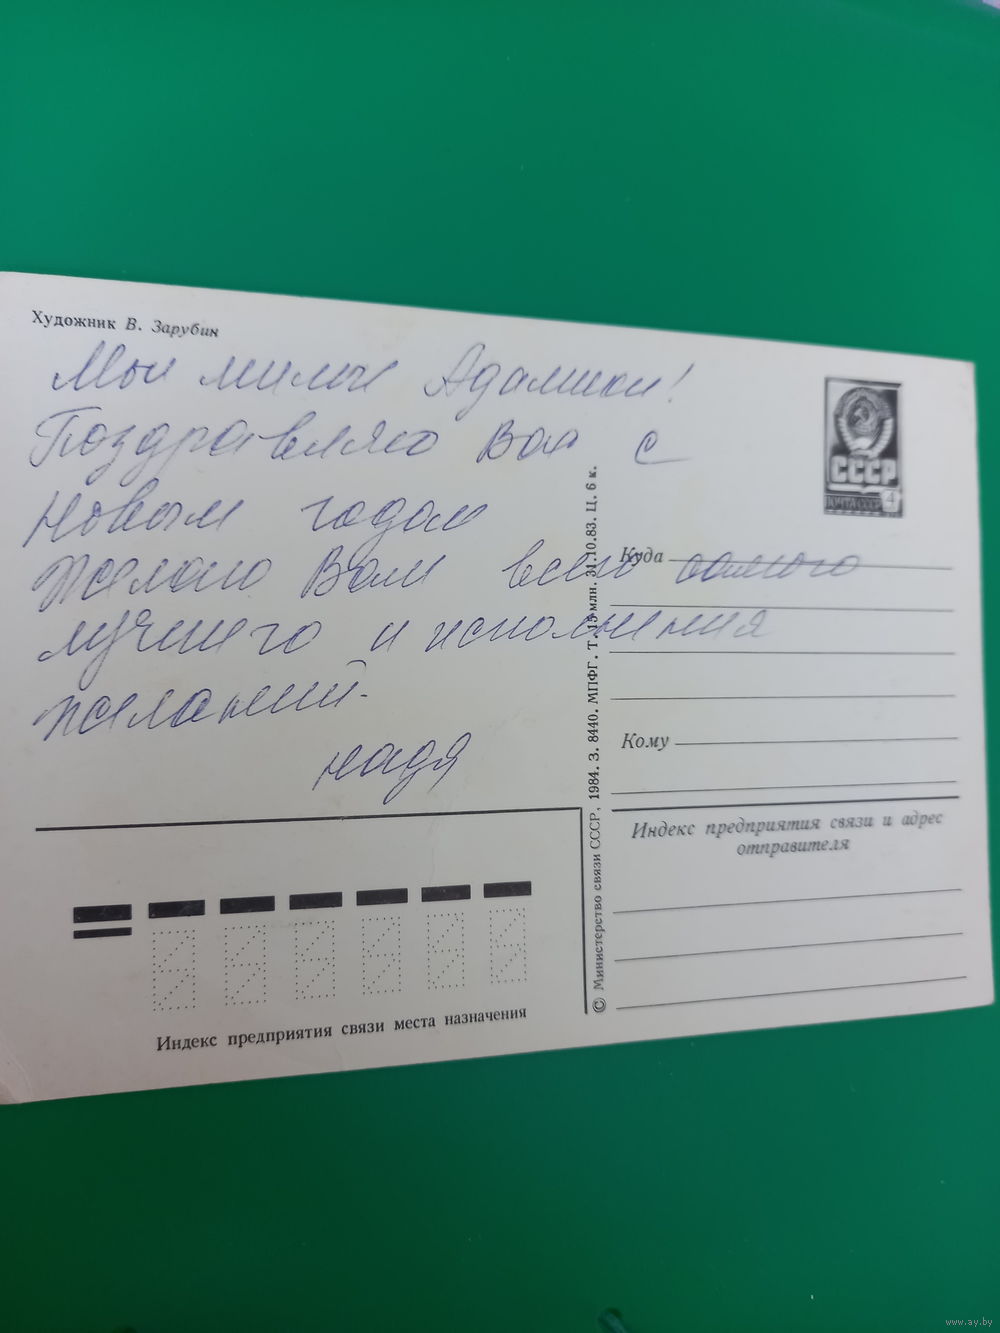 Художник В. Зарубин
Мои милые Адамики!
Поздравляю Вас с
Новым годом
Желаю Вам всего самого
лучшего и исполнения
желаний.
Надя
СССР
ПОЧТА СССР 4
Куда
Кому
Индекс предприятия связи и адрес
отправителя
© Министерство связи СССР, 1984. З. 8440. МПФГ. Т. 15 млн. 31.10.83. Ц. 6 к.
Индекс предприятия связи места назначения
www.ay.by